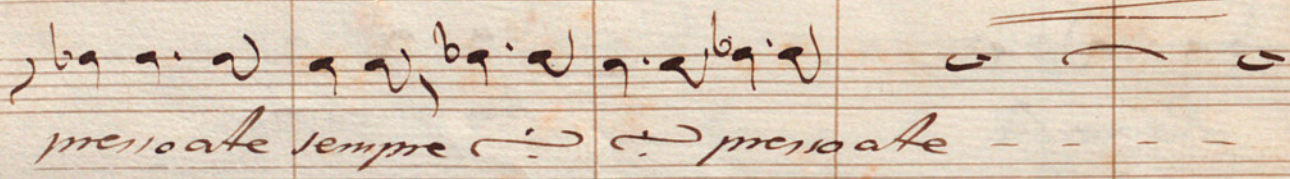 presso a te sempre presso a te - - - -